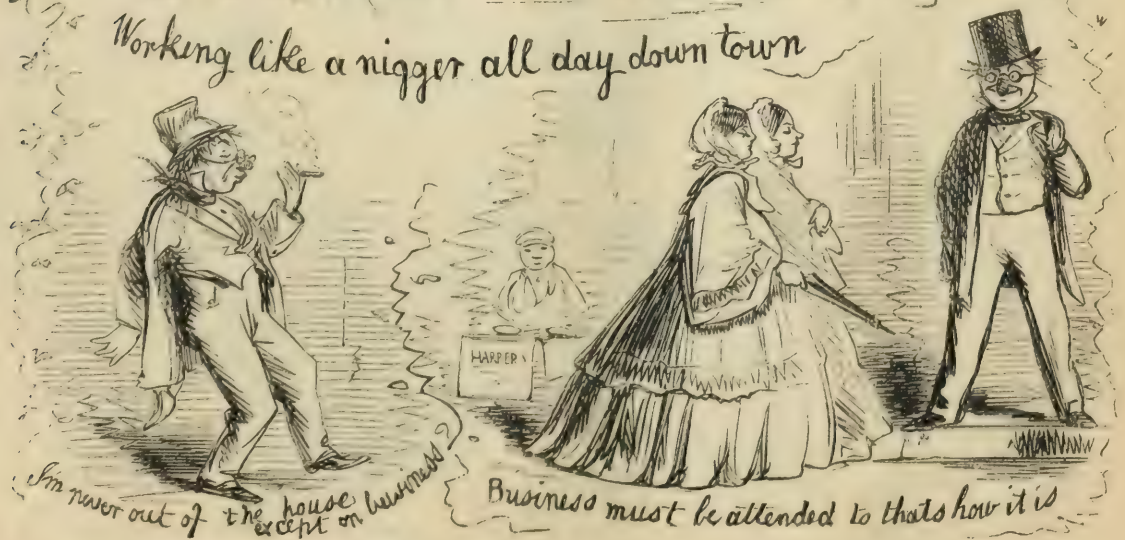 Working like a nigger all day down town
HARPERS
I'm never out of the house
except on business
Business must be attended to thats how it is